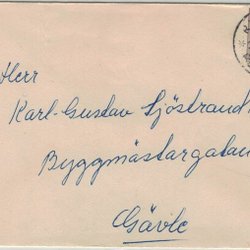 Herr
Karl-Gustav Sjöstrand
Byggmästargatan
Gävle